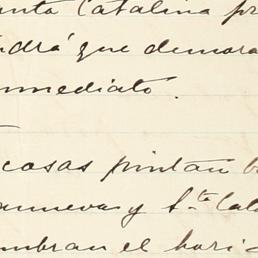 anta Catalina pr
ndrá que demora
nmediato.
cosas pintan b
anueva y Sta Cata
mbran el hori